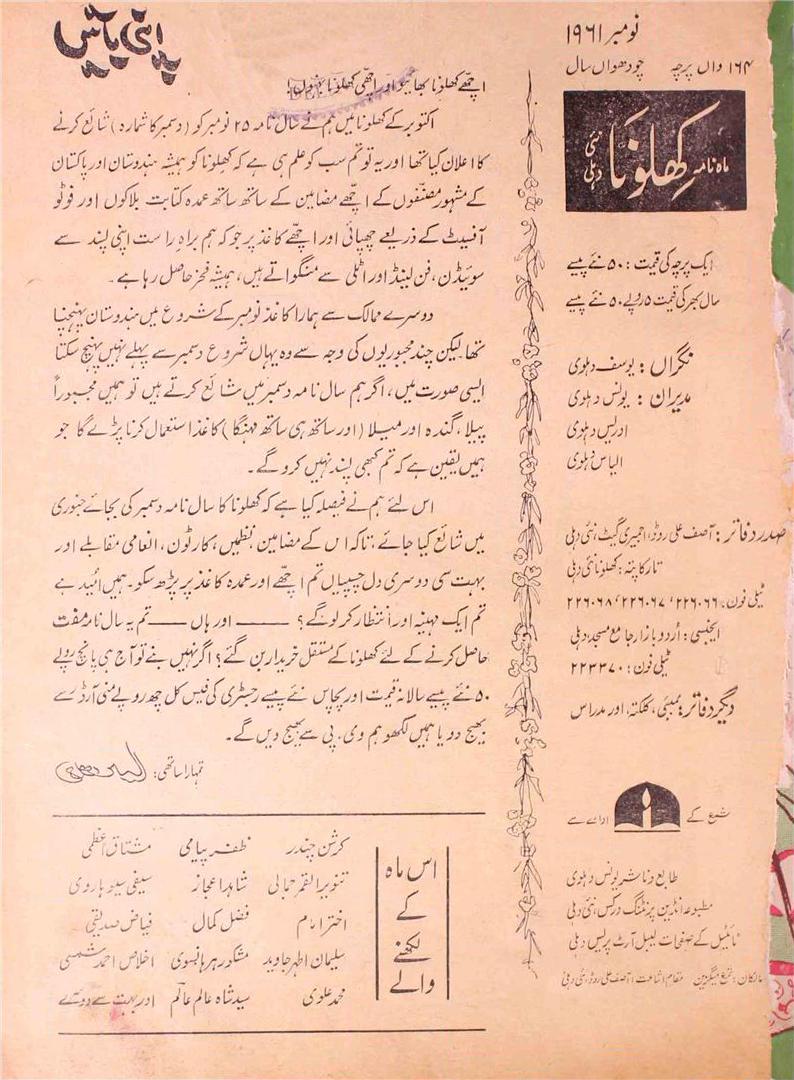 نومبر ۱۹۶۱
۱۶۴ واں پرچہ چودھواں سال
ماہ نامہ کھلونا نئی دہلی
ایک پرچہ کی قیمت : ۵۰ نئے پیسے
سال بھر کی قیمت ۵ روپے ۵۰ نئے پیسے
نگراں : یوسف دہلوی
مدیران : یونس دہلوی
ادریس دہلوی
الیاس دہلوی
صدر دفاتر : آصف علی روڈ، اجمیری گیٹ، نئی دہلی
تار کا پتہ : کھلونا نئی دہلی
ٹیلی فون : ۲۲۶۰۶۶، ۲۲۶۰۶۷، ۲۲۶۰۶۸
ایجنسی : اُردو بازار جامع مسجد، دہلی
ٹیلی فون : ۲۲۳۳۷۰
دیگر دفاتر : بمبئی، کلکتہ، اور مدراس
شمع کے ادارے سے
طابع و ناشر یونس دہلوی
مطبوعہ انڈین پرنٹنگ ورکس، نئی دہلی
ٹائیٹل کے صفحات لیبل آرٹ پریس دہلی
مالکان : شمع میگزین مقام اشاعت : آصف علی روڈ، نئی دہلی
اپنی باتیں
اچھے کھلونا بھائیو اور اچھی کھلونا بہنوں!
اکتوبر کے کھلونا میں ہم نے سال نامہ ۲۵ نومبر کو (دسمبر کا شمارہ) شائع کرنے
کا اعلان کیا تھا اور یہ تو تم سب کو علم ہی ہے کہ کھلونا کو ہمیشہ ہندوستان اور پاکستان
کے مشہور مصنّفوں کے اچھے مضامین کے ساتھ ساتھ عمدہ کتابت بلاکوں اور فوٹو
آفسیٹ کے ذریعے چھپائی اور اچھے کاغذ پر جو کہ ہم براہِ راست اپنی پسند سے
سوئیڈن، فن لینڈ اور اٹلی سے منگواتے ہیں، ہمیشہ فخر حاصل رہا ہے۔
دوسرے ممالک سے ہمارا کاغذ نومبر کے شروع میں ہندوستان پہنچنا
تھا۔ لیکن چند مجبوریوں کی وجہ سے وہ یہاں شروع دسمبر سے پہلے نہیں پہنچ سکتا
ایسی صورت میں، اگر ہم سال نامہ دسمبر میں شائع کرتے ہیں تو ہمیں مجبوراً
پیلا، گندہ اور میلا (اور ساتھ ہی ساتھ مہنگا) کاغذ استعمال کرنا پڑے گا جو
ہمیں یقین ہے کہ تم کبھی پسند نہیں کرو گے۔
اس لئے ہم نے فیصلہ کیا ہے کہ کھلونا کا سال نامہ دسمبر کی بجائے جنوری
میں شائع کیا جائے، تاکہ اس کے مضامین، نظمیں، کارٹون، انعامی مقابلے اور
بہت سی دوسری دل چسپیاں تم اچھے اور عمدہ کاغذ پر پڑھ سکو۔ ہمیں اُمید ہے
تم ایک مہینہ اور انتظار کر لو گے؟ ——— اور ہاں ——— تم یہ سال نامہ مفت
حاصل کرنے کے لئے کھلونا کے مستقل خریدار بن گئے؟ اگر نہیں بنے تو آج ہی پانچ روپے
۵۰ نئے پیسے سالانہ قیمت اور پچاس نئے پیسے رجسٹری کی فیس کل چھ روپے منی آرڈر سے
بھیج دو یا ہمیں لکھو ہم وی۔ پی سے بھیج دیں گے۔
تمہارا ساتھی : الیاس دہلوی
اس ماہ
کے
لکھنے
والے
کرشن چندر ظفر پیامی مشتاق اعظمی
تنویر القمر جمالی شاہد اعجاز سیفی سیوہاروی
اختر امام فضل کمال فیاض صدیقی
سلیمان اطہر جاوید مشکور ہر ہانسوی اخلاص احمد شمسی
محمد علوی سید شاہ عالم عالم اور بہت سے دوسرے